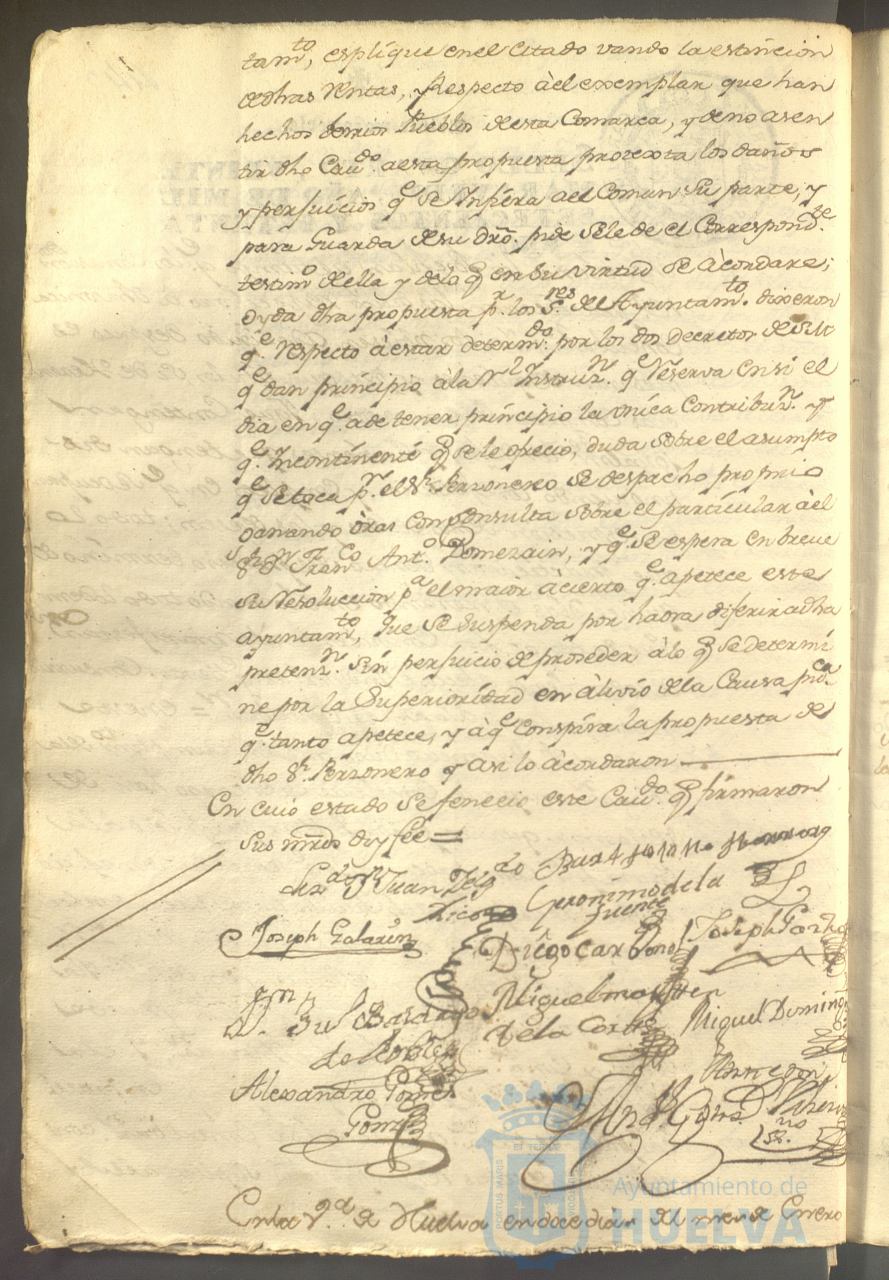 tam.to, esplique en el citado vando la estincion
de dhas Rentas, y Respecto à el exemplar que han
hechos demas Pueblos de esta Comarca, y de no asen
tir dho Cav.do a esta propuesta protexta los daños
y perjuicios q.e se Infiera a el Comun su parte; y
para Guarda de su dro. pide se le de el Correspond.te
testim.o de ella y de lo q.e en su virtud se àcordare;
oyda dha propuesta p.r los S.res del Ayuntam.to dixeron
q.e Respecto à estar determ.do por los dos Decretos de S.M.
q.e dan principio à la R.l Instruz.n q.e Reserva en si el
dia en q.e a de tener principio la unica Contribuz.n y
q.e Incontinenti q.e se le ofrecio, duda sobre el asumpto
q.e se toca p.r el S.r Perzonero se despacho propio
ganando òras con Consulta sobre el particular à el
S.r D.n Fran.co Ant.o Domezain, y q.e se espera en breve
su Resoluccion p.a el maior àcierto q.e apetece este
ayuntam.to, que se suspenda por haora diferir a dha
preten.n sin perjuicio de proseder à lo q.e se determi
ne por la Superioridad en àlivio de la Causa pu.ca
q.e tanto apetece, y à q.e Conspira la propuesta de
dho S.r Perzonero y asi lo àcordaron
En cuio estado se fenecio este Cav.do q.e firmaron
sus mrds doy fee =
Liz.do D.n Juan
Geronimo de la
fuente
Joseph Galarin
Diego Carbonel
Joseph
Miguel Martin
de la Corte
Miguel Doming
de Robles
Alexandro Gomez
And.s Gonz.
Gomez
Ss.no
En la V.a de Huelva en doce dias del mes de Enero
Ayuntamiento de
HUELVA